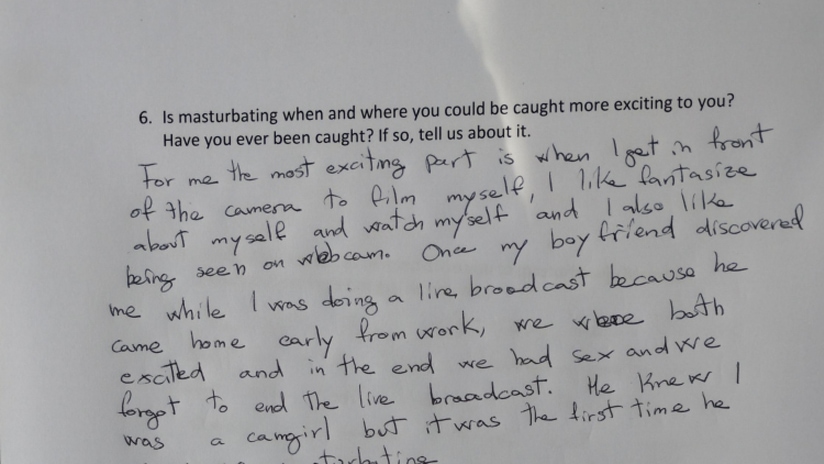 6. Is masturbating when and where you could be caught more exciting to you?
Have you ever been caught? If so, tell us about it.
For me the most exciting part is when I get in front
of the camera to film myself, I like fantasize
about myself and watch myself and I also like
being seen on webcam. Once my boyfriend discovered
me while I was doing a live broadcast because he
came home early from work, we were both
excited and in the end we had sex and we
forgot to end the live broadcast. He knew I
was a camgirl but it was the first time he